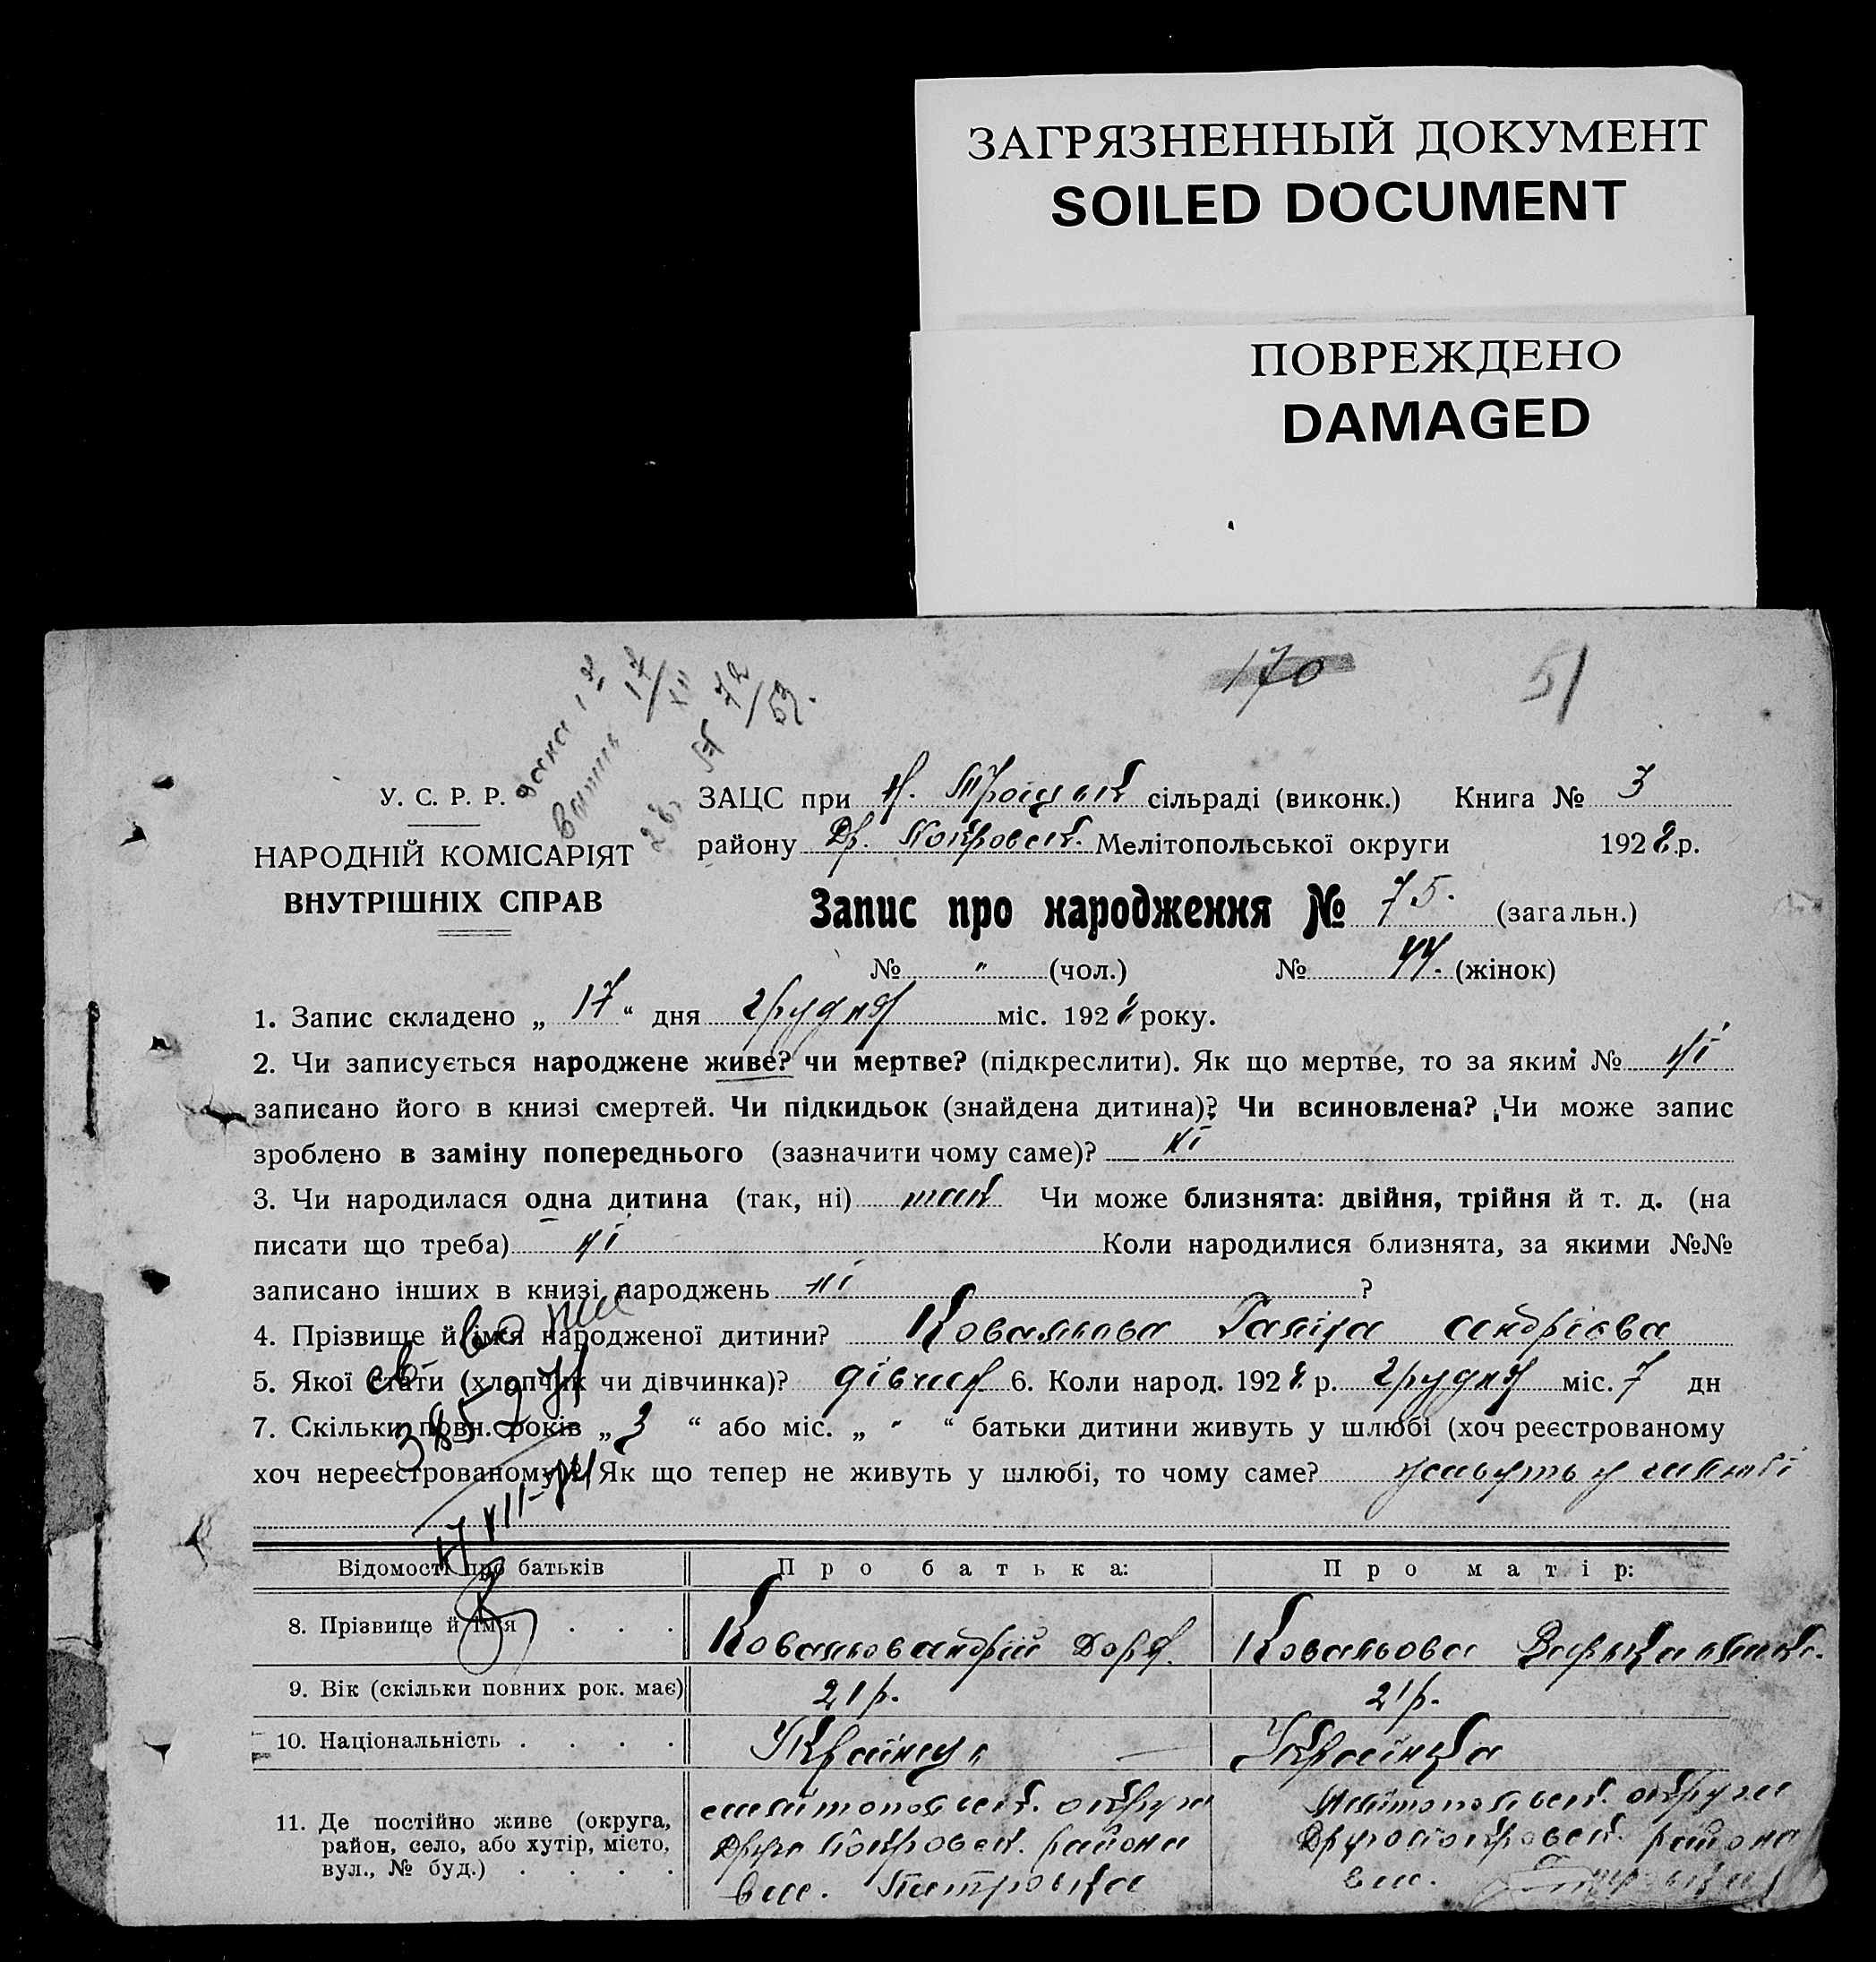 ЗАГРЯЗНЕННЫЙ ДОКУМЕНТ
SOILED DOCUMENT
ПОВРЕЖДЕНО
DAMAGED
170 51
У. С. Р. Р.
НАРОДНІЙ КОМІСАРІЯТ
ВНУТРІШНІХ СПРАВ
ЗАЦС при Н. Троіцьк сільраді (виконк.) Книга № 3
району Др. Покровськ. Мелітопольської округи 1928 р.
Запис про народження № 75. (загальн.)
№ " (чол.) № 44. (жінок)
1. Запис складено „ 17 “ дня грудня міс. 1928 року.
2. Чи записується народжене живе? чи мертве? (підкреслити). Як що мертве, то за яким № ні
записано його в книзі смертей. Чи підкидьок (знайдена дитина)? Чи всиновлена? Чи може запис
зроблено в заміну попереднього (зазначити чому саме)? ні
3. Чи народилася одна дитина (так, ні) так Чи може близнята: двійня, трійня й т. д. (на
писати що треба) ні Коли народилися близнята, за якими №№
записано інших в книзі народжень ні ?
4. Прізвище й імя народженої дитини? Ковальова Галіна андрієва
5. Якої стати (хлопчик чи дівчинка)? дівчин 6. Коли народ. 1928 р. грудня міс. 7 дн
7. Скільки повн. років „ 3 “ або міс. „ " “ батьки дитини живуть у шлюбі (хоч реєстрованому
хоч нереєстрованому)? Як що тепер не живуть у шлюбі, то чому саме? живуть у шлюбі
Відомості про батьків Про батька: Про матір:
8. Прізвище й імя . . . Ковальов андрій Ковальова
9. Вік (скільки повних рок. має) 21 р. 21 р.
10. Національність . . . . Українець Українка
11. Де постійно живе (округа, мелітопольськ. округи Мелітопольськ. округи
район, село, або хутір, місто, Друго Покровськ. района Другопокровськ. района
вул., № буд.) . . . .